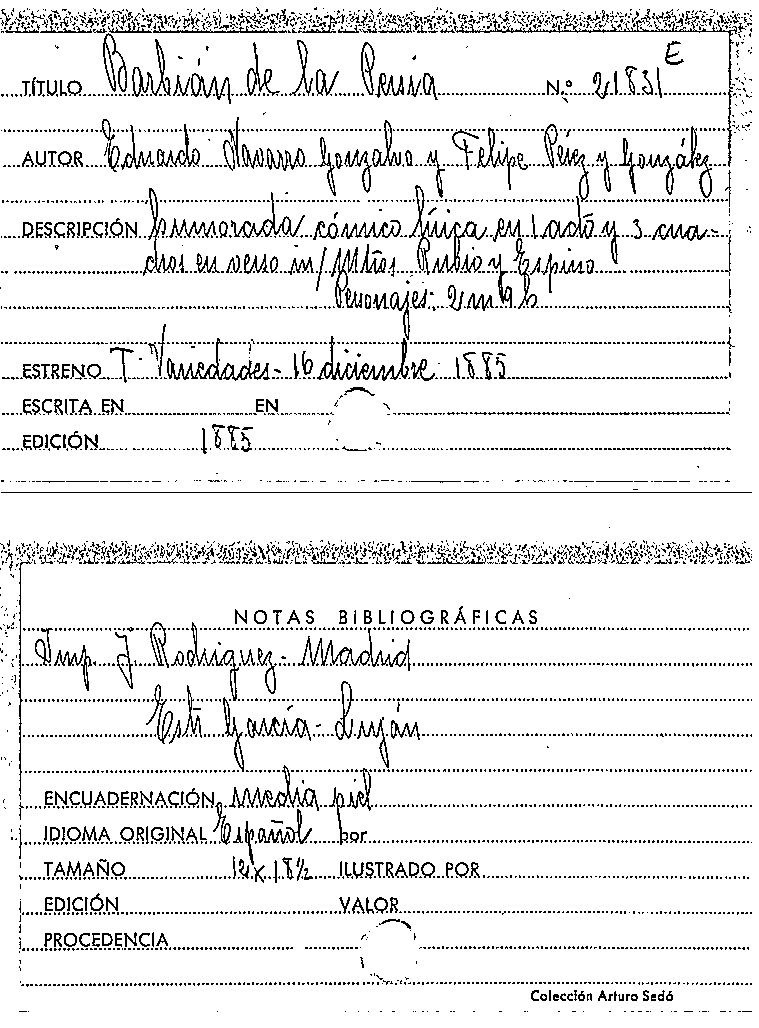 E
TÍTULO Barbián de la Persia N.º 21831
AUTOR Eduardo Navarro Gonzalvo y Felipe Pérez y González
DESCRIPCIÓN humorada cómico lírica en 1 acto y 3 cua-
dros en verso m/ Mtros Rubio y Espino
Personajes: 2 m 9 h
ESTRENO T. Variedades - 16 diciembre 1885
ESCRITA EN EN
EDICIÓN 1885
NOTAS BIBLIOGRÁFICAS
Imp. J. Rodriguez - Madrid
Estr García - Luján
ENCUADERNACIÓN media piel
IDIOMA ORIGINAL Español por
TAMAÑO 12 x 18½ ILUSTRADO POR
EDICIÓN VALOR
PROCEDENCIA
Colección Arturo Sedó